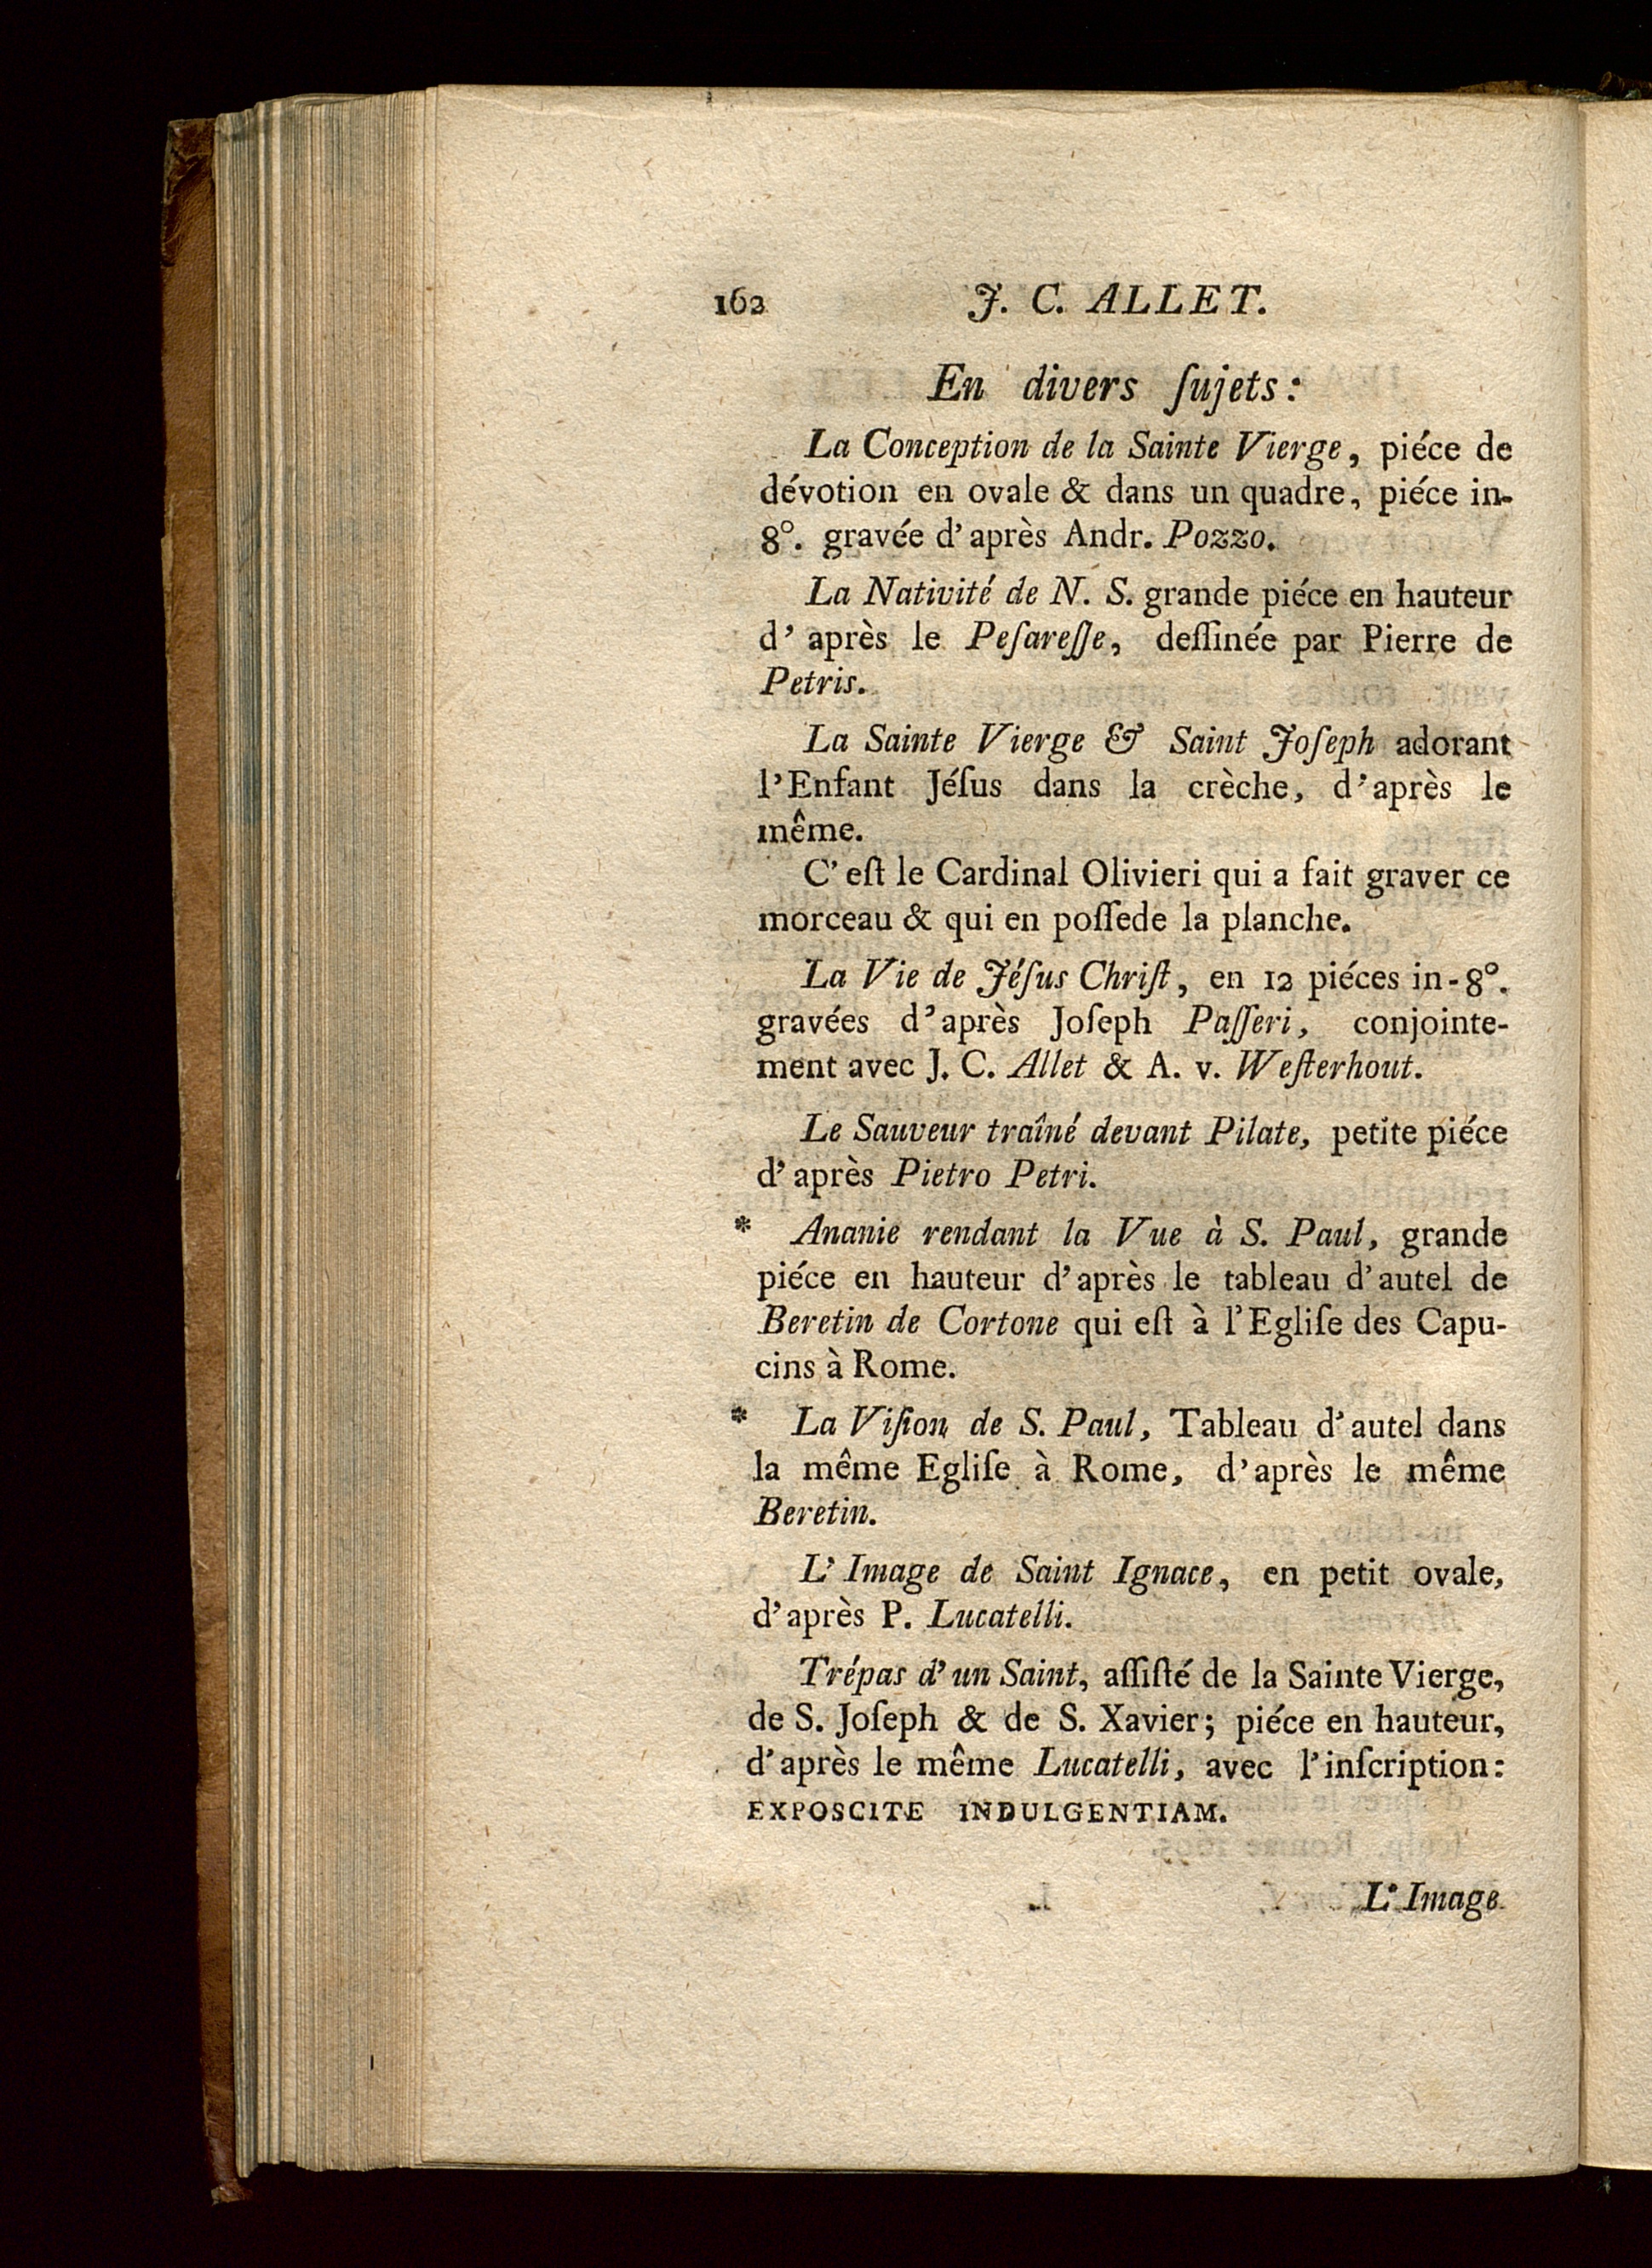 162 J. C. ALLET.
En divers ſujets:
La Conception de la Sainte Vierge, piéce de
dévotion en ovale & dans un quadre, piéce in-
8°. gravée d'après Andr. Pozzo.
La Nativité de N. S. grande piéce en hauteur
d' après le Peſareſſe, deſſinée par Pierre de
Petris.
La Sainte Vierge & Saint Joſeph adorant
l'Enfant Jéſus dans la crèche, d'après le
même.
C'eſt le Cardinal Olivieri qui a fait graver ce
morceau & qui en poſſede la planche.
La Vie de Jéſus Chriſt, en 12 piéces in-8°.
gravées d'après Joſeph Paſſeri, conjointe-
ment avec J. C. Allet & A. v. Weſterhout.
Le Sauveur traîné devant Pilate, petite piéce
d'après Pietro Petri.
* Ananie rendant la Vue à S. Paul, grande
piéce en hauteur d'après le tableau d'autel de
Beretin de Cortone qui eſt à l'Egliſe des Capu-
cins à Rome.
* La Viſion de S. Paul, Tableau d'autel dans
la même Egliſe à Rome, d'après le même
Beretin.
L'Image de Saint Ignace, en petit ovale,
d'après P. Lucatelli.
Trépas d'un Saint, aſſiſté de la Sainte Vierge,
de S. Joſeph & de S. Xavier; piéce en hauteur,
d'après le même Lucatelli, avec l'inſcription:
EXPOSCITE INDULGENTIAM.
L'Image